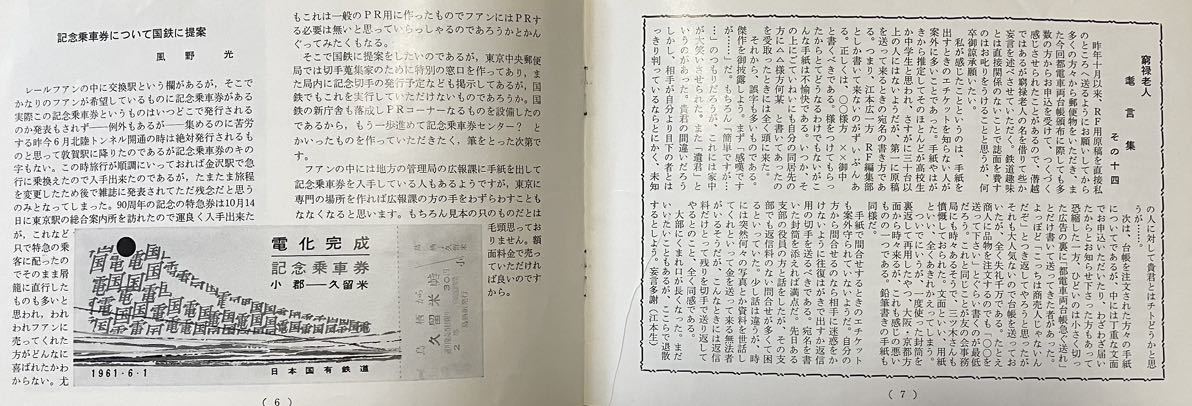 記念乗車券について国鉄に提案
風野 光
レールフアンの中に交換駅という欄があるが、そこで
かなりのフアンが希望しているものに記念乗車券がある
実際この記念乗車券というものはいつどこで発行されるも
のか発表もされず――例外もあるが――集めるのに苦労
する昨今6月北陸トンネル開通の時は絶対発行されるも
のと思って敦賀駅に降りたのであるが記念乗車券のキの
字もない。この時旅行が順調にいっておれば金沢で急
行に乗換えたので入手出来たのであるが、たまたま旅程
を変更したため後で雑誌に発表されてただ残念だと思う
のみとなってしまった。90周年の記念の特急券は10月14
日に東京駅の総合案内所を訪れたので運良く入手出来た
が、これなど
只で特急の乗
客に配ったの
でそのまま屑
籠に直行した
ものも多いと
思われ、われ
われフアンに
売ってくれた
方がどんなに
喜ばれたかわ
からない。尤
もこれは一般のPR用に作ったものでフアンにはPRす
る必要は無いと思っていらっしゃるのであろうかとかん
ぐってみたくもなる。
そこで国鉄に提案をしたいのであるが、東京中央郵便
局では切手蒐集家のために特別の窓口を作ってあり、ま
た局内に記念切手の発行予定なども掲示してあるが、国
鉄でもこれを実行していただけないものであろうか。国
鉄の新庁舎も落成しPRコーナーなるものを設備したの
であるから、もう一歩進めて記念乗車券センター? と
かいったものを作っていただきたく、筆をとった次第で
す。
フアンの中には地方の管理局の広報課に手紙を出して
記念乗車券を入手している人もあるようですが、東京に
専門の場所を作れば広報課の方の手をわずらわすことも
なくなると思います。もちろん見本の只のものだとは
毛頭思ってお
りません。額
面料金で売っ
ていただけれ
ば良いのです
から。
電化完成
記念乗車券
小郡―久留米
1961・6・1
日本国有鉄道
鳥栖から
久留米ゆき
( 6 )
窮禄老人
耄言集 その十四
昨年十月以来、RF用原稿を直接私
のところへ送るようにお願いしてから
多くの方々から郵便物をいただき、ま
た今回都電車両台帳頒布に際しても多
数の方からお申込を受けて、つくづく
感じさせられたことがあるので、僭越
ではあるが窮禄老人の名を借りて、
妄言を述べさせていただく。鉄道趣味
に直接関係のないことで誌面を費す
のはお叱りをうけることと思うが、何
卒御諒承願いたい。
私が感じたことというのは、手紙を
出すときのエチケットを知らない人が
案外に多いことであった。手紙やはが
きから推定してそのほとんどが高校生
か中学生と思われ、さすがに三十台以
上の人にはなかったが、第一に原稿
を送って来るときの宛名の書き方であ
る。つまり、江本広一方 RF編集部
とか書いて来ないのがずいぶんあ
る。正しくは、〇〇様方 ××御中
と書くべきである。様をつけてもらっ
たからとてどうなるわけでもないがこ
んな手紙は不愉快である。いつか、そ
の上にごていねいにも自分の同居先の
方に△△様方何某 と書いてあった手紙
を受取ったときには全く頭に来た。
それから、誤字も多いものである。
傑作を御披露しよう。まず「感嘆です
が……」だもちろん「簡単ですが…
…」のつもりだろうが、これには家中
が大笑いさせられた。また「遺君」と
いうのがあった。貴君の間違いだろう
が、しかし、相手が自分より目下の者とは
っきり判っているならとにかく、未知
の人に対して貴君とはチトどうかと思
う。
次は、台帳を注文された方々の手紙
についてであるが、中には丁重な文面
でお申込いただいたり、わざわざ届い
たからとお知らせ下さった方もあって
恐縮した一方、ひどいのは小さく切っ
た広告の裏に「都電車両台帳急ぐ送れ」
とだけ書いて送って来た者があった。
よっぽど「こっちは商売人じゃないん
だぞ」と書いて送り返してやろうと思ったが
それも大人気ないので台帳を送ってお
いたが、全く失礼千万である。たとえ
商人に品物を注文するのでも「〇〇を
送って下さい」とぐらい書くのが最低
だろう。これと同じことが友の会事務
局にも時々あるそうで三ツ木さんも
憤慨しておられた。文面といい、用紙
といい、全くあきれかえってしまう。
ついでにいうが、一度使った封筒を
裏返して再用したやつが、大阪、京都方
面から時々来るが、これも感じの悪い
ものの一つである。鉛筆書きの手紙も
同様だ。
手紙で問合せするときのエチケット
も案外守られていないようだ。自分の
方から問合せるのなら相手に迷惑をか
けないように往復はがきで出すか返信
用の切手を送るべきである。宛名を書
いた封筒を添えれば満点だ。先日ある
支部の役員の方と話をしたが、その支
部でも返信料のない問合せが多くて困
っているといった。少し話は違うが、時
には突然何々の写真とか資料を世話し
てくれといって金を送って来る無法者
もあるそうだが、こんなときには返信
料だけとって残りを切手で送り返して
やるとのこと、全く同感である。
大部にくまれ口が長くなった。まだ
いいたいこともあるが、ここらで退散
するとしよう。妄言多謝 (江本生)
( 7 )